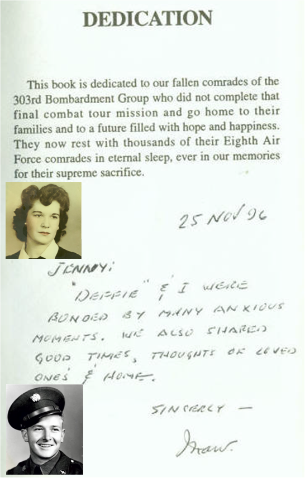 DEDICATION
This book is dedicated to our fallen comrades of the
303rd Bombardment Group who did not complete that
final combat tour mission and go home to their
families and to a future filled with hope and happiness.
They now rest with thousands of their Eighth Air
Force comrades in eternal sleep, ever in our memories
for their supreme sacrifice.
25 NOV 96
JENNY:
"DEFFIE" & I WERE
BONDED BY MANY ANXIOUS
MOMENTS. WE ALSO SHARED
GOOD TIMES, THOUGHTS OF LOVED
ONES & HOME.
SINCERLY —